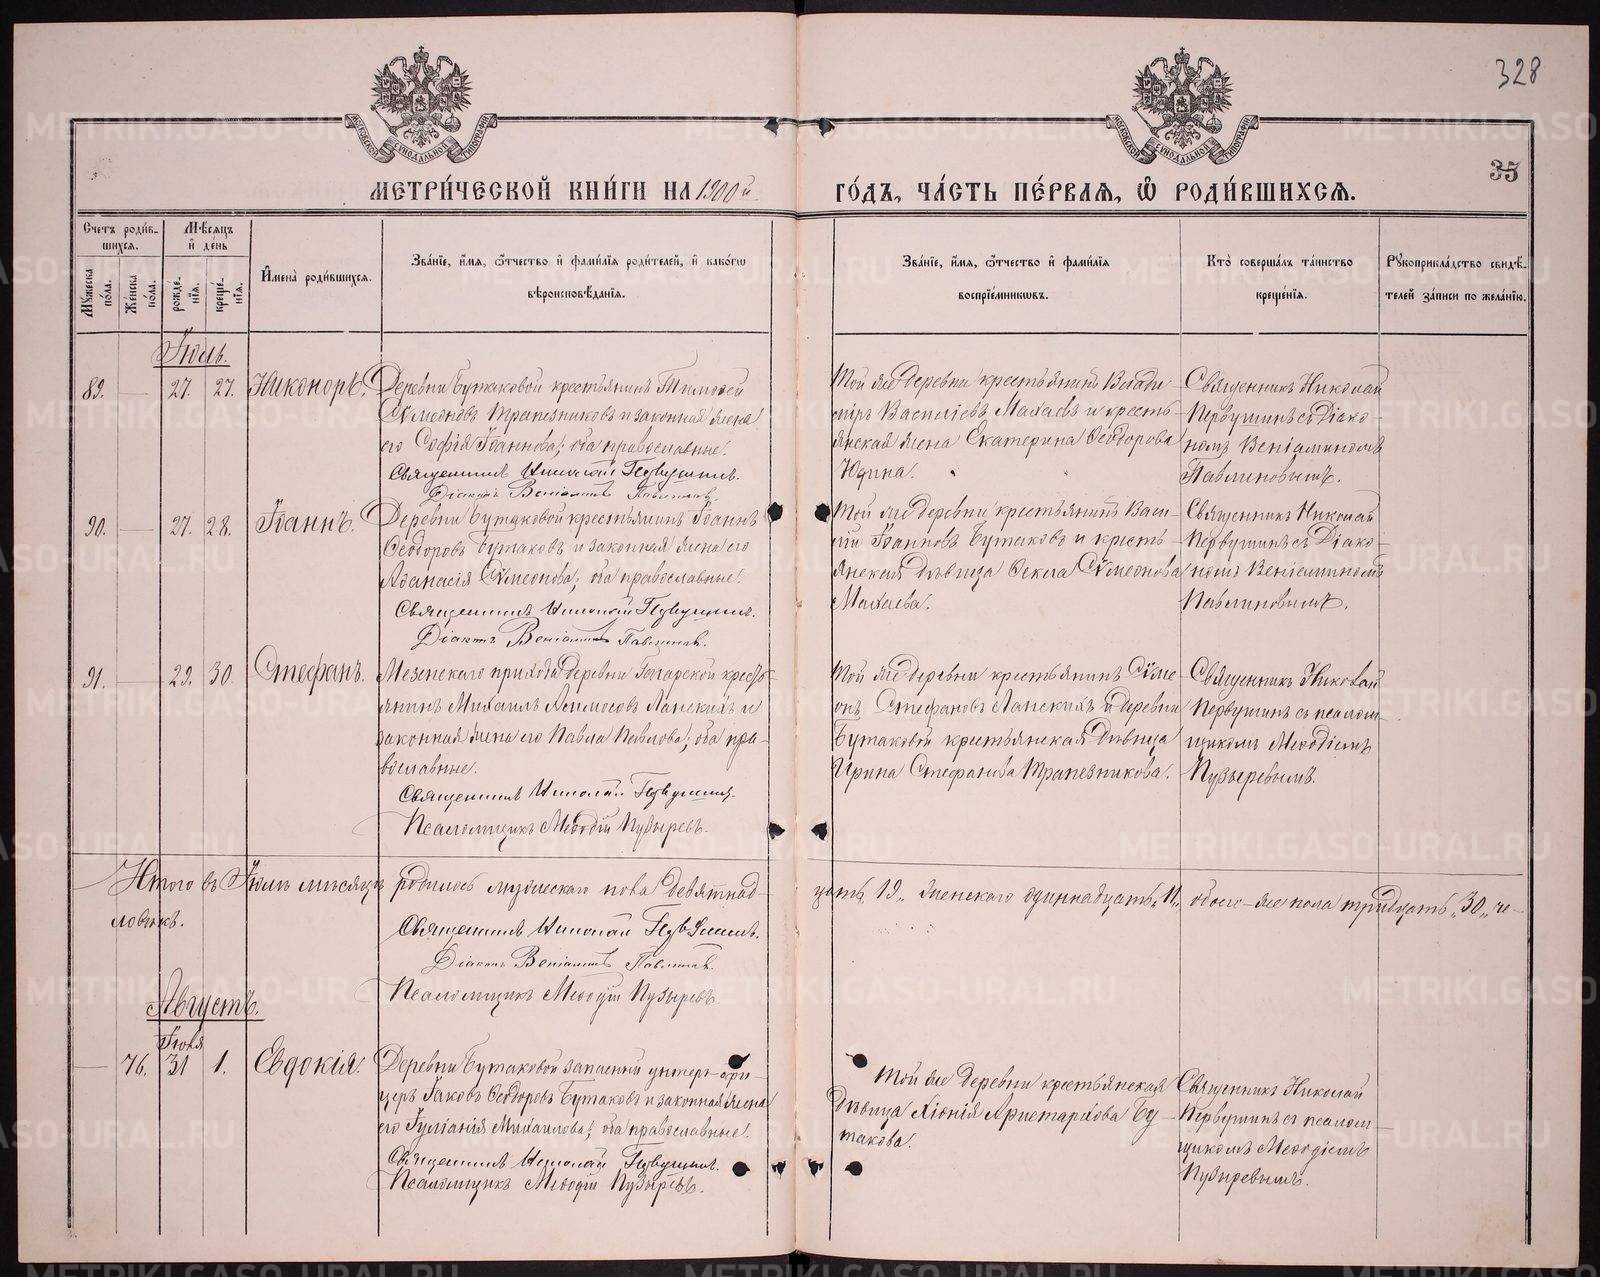 328
35
МОСКОВСКОЙ СѴНОДАЛЬНОЙ ТИПОГРАФІИ
МОСКОВСКОЙ СѴНОДАЛЬНОЙ ТИПОГРАФІИ
МЕТРИ́ЧЕСКОЙ КНИ́ГИ НА 1900й
ГО́ДЪ, ЧА́СТЬ ПЕ́РВАЯ, Ѡ РОДИ́ВШИХСЯ.
Счетъ роди́в-
шихся.
Мѣсяцъ
и҆ де́нь
Мꙋжеска
по́ла.
Же́нска
по́ла.
рожде-
нїя.
креще-
нїя.
И҆мена̀ роди́вшихся.
Зва́нїе, и҆́мя, ѻ҆́тчество и҆ фами́лїя роди́телей, и҆ како́гѡ
вѣроисповѣ́данїя.
Зва́нїе, и҆́мя, ѻ҆́тчество и҆ фами́лїя
воспрїе́мниковъ.
Кто̀ соверша́лъ та́инство
креще́нїя.
Рꙋкоприкла́дство свидѣ́-
телей за́писи по жела́нїю.
Іюль.
89. — 27. 27. Никоноръ.
Деревни Бутаковой крестьянинъ Тимоѳей
Сѵмеоновъ Трапезниковъ и законная жена
его Софія Іоаннова; оба православные.
Священникъ Николай Первушинъ.
Діаконъ Веніаминъ Павлиновъ.
Той же деревни крестьянинъ Влади-
міръ Василіевъ Махаевъ и кресть-
янская жена Екатерина Ѳеодорова
Юдина.
Священникъ Николай
Первушинъ съ Діако-
номъ Веніаминомъ
Павлиновымъ.
90. — 27. 28. Іоаннъ.
Деревни Бутаковой крестьянинъ Іоаннъ
Ѳеодоровъ Бутаковъ и законная жена его
Аѳанасія Сѵмеонова; оба православные.
Священникъ Николай Первушинъ.
Діаконъ Веніаминъ Павлиновъ.
Той же деревни крестьянинъ Васи-
лій Іоанновъ Бутаковъ и кресть-
янская дѣвица Ѳекла Сѵмеонова
Махаева.
Священникъ Николай
Первушинъ съ Діако-
номъ Веніаминомъ
Павлиновымъ.
91. — 29. 30 Стефанъ.
Мезенскаго прихода деревни Гагарской кресть-
янинъ Михаилъ Ланскихъ и
законная жена его Павла Павлова; оба пра-
вославные.
Священникъ Николай Первушинъ.
Псаломщикъ Меѳодій Пузыревъ.
Той же деревни крестьянинъ Сѵме-
онъ Стефановъ Ланскихъ и деревни
Бутаковой крестьянская дѣвица
Ирина Стефанова Трапезникова.
Священникъ Николай
Первушинъ съ псалом-
щикомъ Меѳодіемъ
Пузыревымъ.
Итого въ Іюлѣ мѣсяцѣ родилось мужескаго пола девятнад-
цать „19„ женскаго одиннадцать „11„ обоего-же пола тридцать „30„ че-
ловѣкъ.
Священникъ Николай Первушинъ.
Діаконъ Веніаминъ Павлиновъ.
Псаломщикъ Меѳодій Пузыревъ.
Августъ.
Іюля
— 76. 31 1. Евдокія.
Деревни Бутаковой запасный унтеръ-офи-
церъ Іаковъ Ѳеодоровъ Бутаковъ и законная жена
его Іуліанія Михаилова; оба православные.
Священникъ Николай Первушинъ.
Псаломщикъ Меѳодій Пузыревъ.
Той же деревни крестьянская
дѣвица Хіонія Аристархова Бу-
такова.
Священникъ Николай
Первушинъ съ псалом-
щикомъ Меѳодіемъ
Пузыревымъ.
METRIKI.GASO-URAL.RU